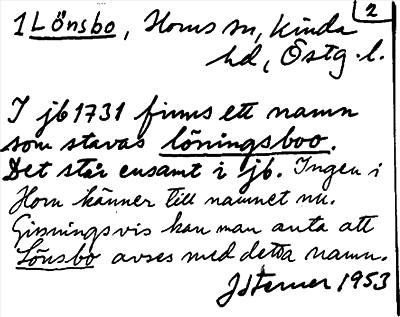 2
1 Lönsbo, Horns sn, Kinda
hd, Östg. l.
I jb 1731 finns ett namn
som stavas löningsboo.
Det står ensamt i jb. Ingen i
Horn känner till namnet nu.
Gissningsvis kan man anta att
Lönsbo avses med detta namn.
JSterner 1953